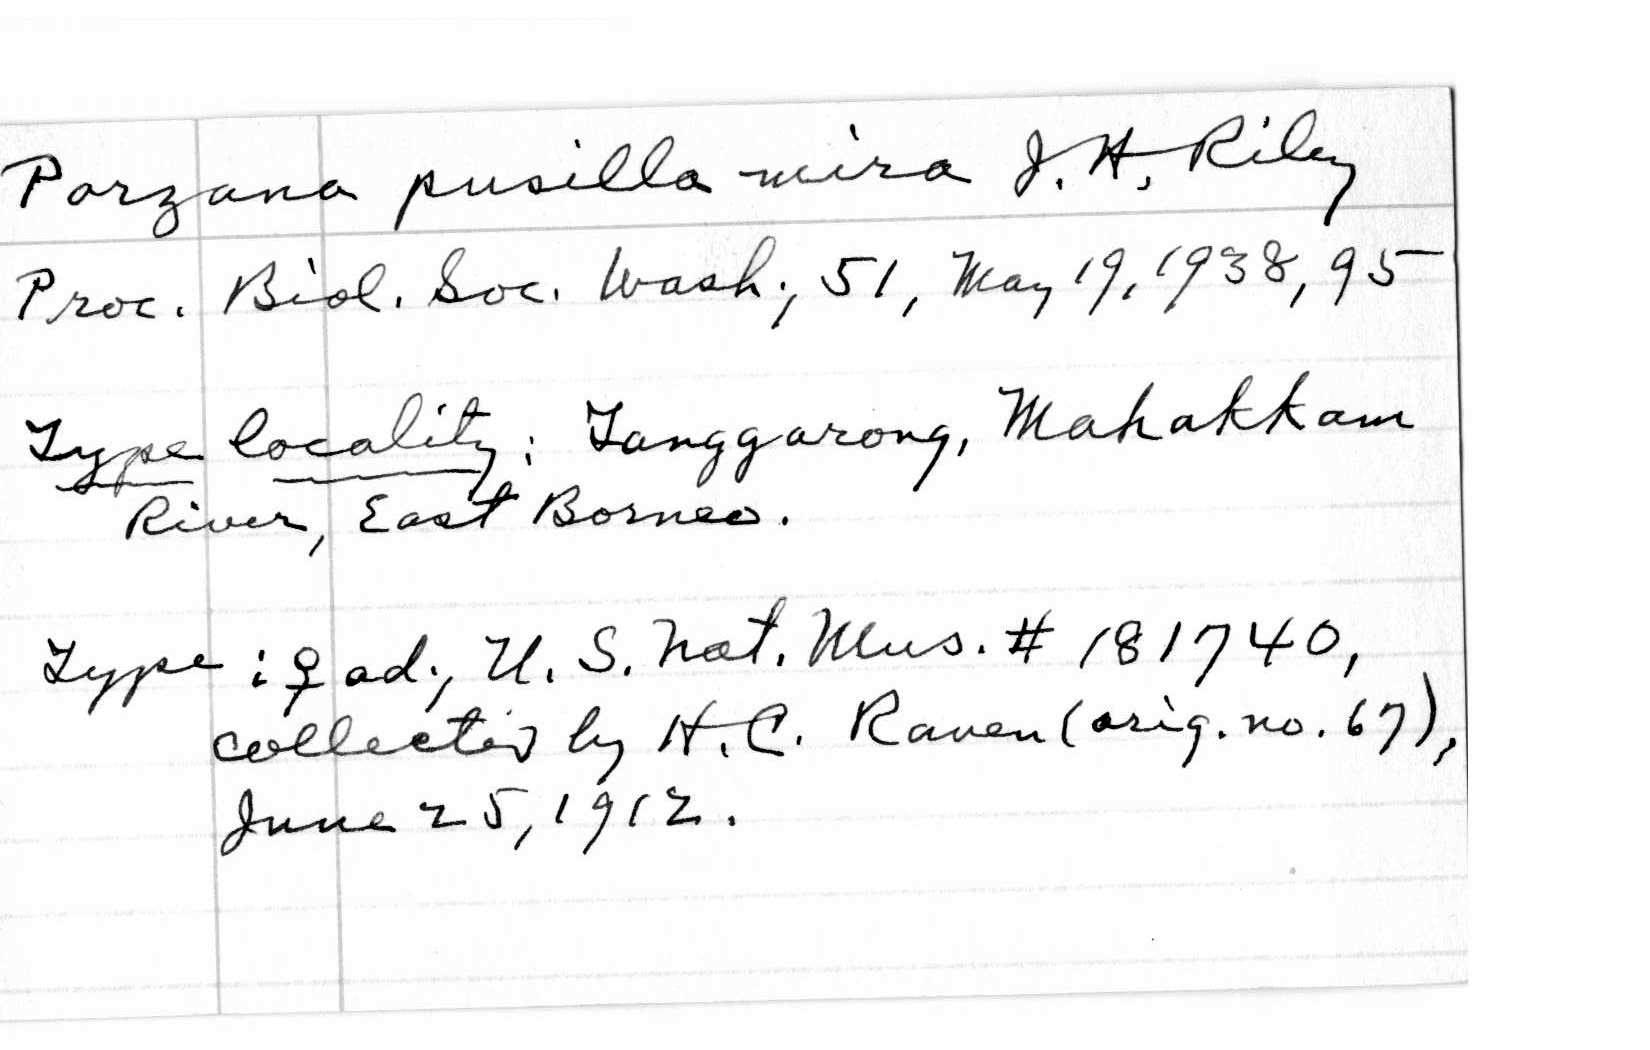 Porzana pusilla mira J. H. Riley
Proc. Biol. Soc. Wash., 51, May 19, 1938, 95
Type locality: Tanggarong, Mahakkam
River, East Borneo.
Type: ♀ ad., U. S. Nat. Mus. # 181740,
collected by H. C. Raven (orig. no. 67),
June 25, 1912.